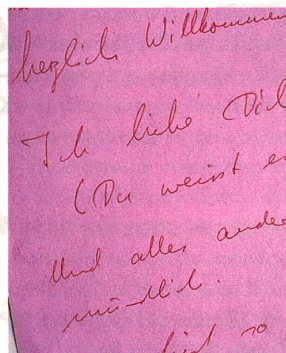 herzlich Willkommen
Ich liebe Dich
(Du weisst es
Und alles ander
mündlich.
bist so